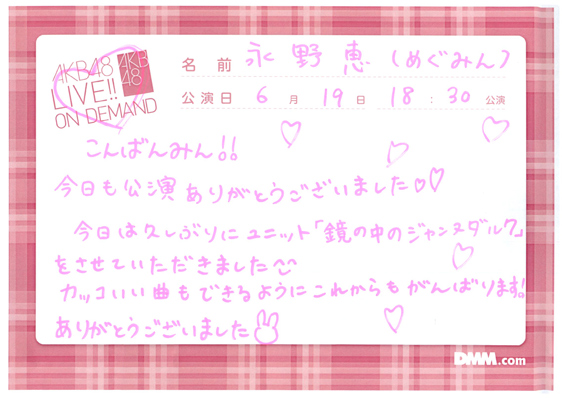 AKB48
LIVE!!
ON DEMAND
AKB
48
名前 永野恵(めぐみん)
公演日 6月19日 18:30公演
こんばんみん!!
今日も公演ありがとうございました
今日は久しぶりにユニット「鏡の中のジャンヌダルク」
をさせていただきました
カッコいい曲もできるようにこれからもがんばります!
ありがとうございました
DMM.com